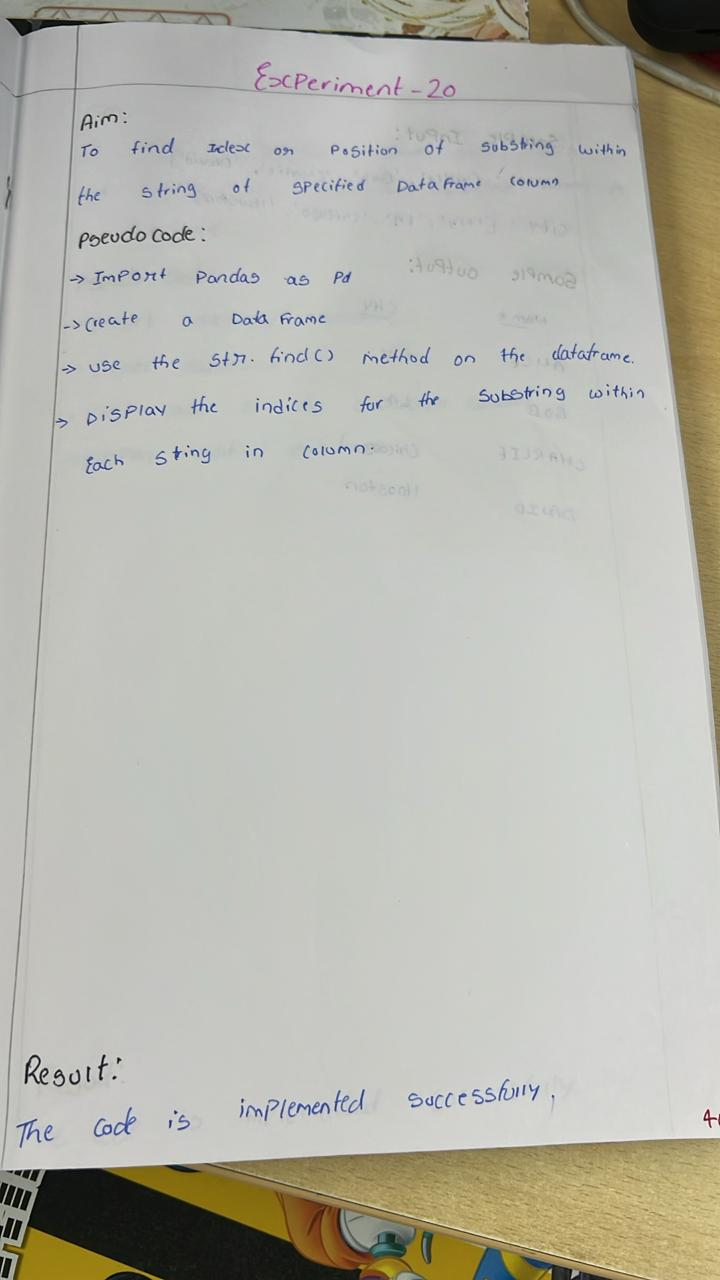 Experiment - 20
Aim:
To find Idex or Position of substring within
the string of specified DataFrame column
Pseudo code:
→ Import Pandas as Pd
→ create a Data Frame
→ use the str. find() method on the dataframe.
→ Display the indices for the substring within
Each string in column.
Result:
The code is implemented successfully.